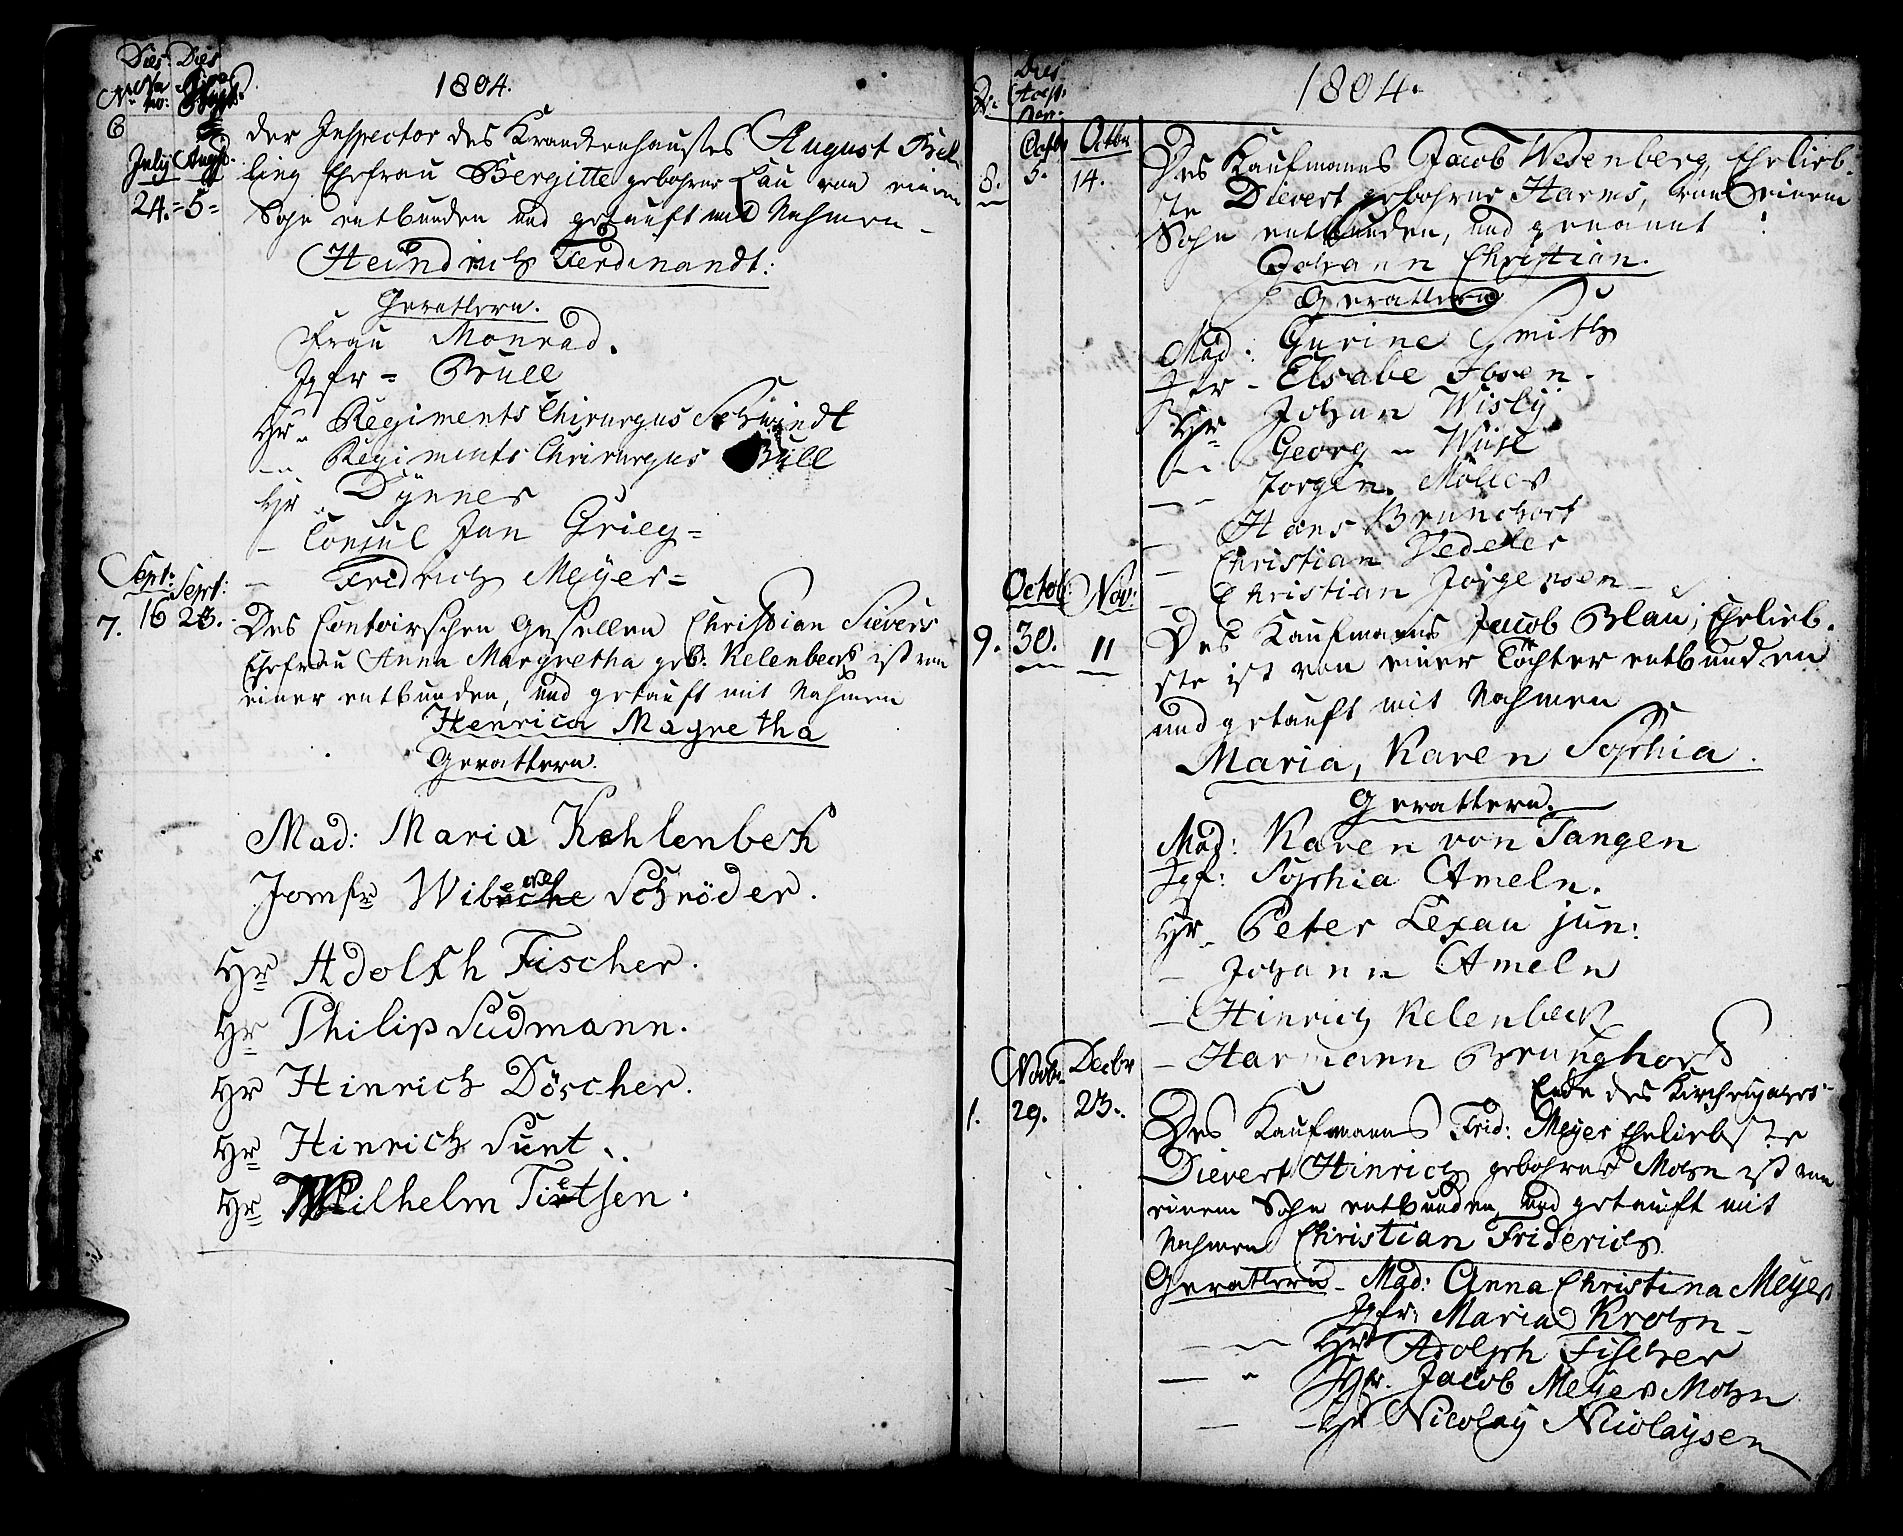 1804.
6
July Aug.
24. 5
der Inspector des Krancken hauses August Bil-
ling Ehefrau Bergitte gebohrne Lau von einem
Sohn entbunden und getauft mit Nahmen
Heindrich Ferdinandt:
Gevattern.
Frau Monrad.
Jgfr = Büll
Hr. Regiments Chirurgus Schmidt
Regiments Chirurgus Büll
Hr. Dÿnnes
Consul Jan Grieg =
Fridrich Meÿer =
Sept: Sept:
7. 16 23.
Des Contoirschen Gesellen Christian Sievers
Ehefrau Anna Margretha geb: Kelenbeck ist von
einer entbunden, und getauft mit Nahmen
Henrica Magretha
Gevattern.
Mad: Maria Kohlenbek
Jomfr Wibecke Schröder.
Hr Adolfh Fischer.
Hr Philip Sudmann.
Hr Hinrich Döscher.
Hr Hinrich Sunt.
Hr Wilhelm Tietsen.
1804.
Octb Octbr
8. 5. 14.
Des Kaufmanns Jacob Wesenberg, Ehelieb-
ste Dievert gebohrne Harms, von einem
Sohn entbunden, und genannt:
Johann Christian.
Gevattern
Mad: Gurine Smith
Jfr - Elsabe Ibsen.
Hr Johan Wisby
Georg Wüst
Jorgen. Möller
Hans Brunchorst
Christian Vedeler
Christian Jörgensen
Octob: Nov:
9. 30. 11
Des Kaufmanns Jacob Blau; Ehelieb.
ste ist von einer Töchter entbunden
und getauft mit Nahmen
Maria, Karen Sophia.
Gevattern.
Mad: Karen von Tangen
Jgf: Sophia Ameln.
Hr. Peter Lexau jun:
Johann Ameln
Hinrich Kelenbeck
Harmann Brunghorst
Ende des Kirchenjahres
Novbr Decbr
1. 29. 23.
Des Kaufmanns Frid: Meyer Eheliebste
Dievert Hinrich gebohrne Mohn ist von
einem Sohn entbunden, und getauft mit
Nahmen Christian Friderich
Gevattern - Mad: Anna Christina Meyer
Jgfr: Maria Krohn -
Hr Adolph Fischer
Hr. Jacob Meyer Mohn
Hr Nicolaÿ Nicolaysen